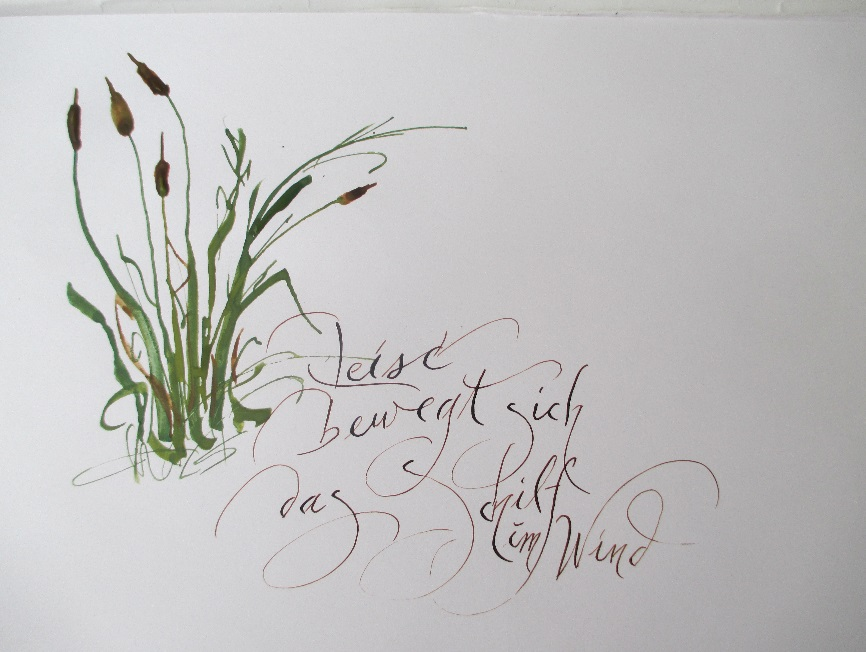 Leise
bewegt sich
das Schilf
im Wind